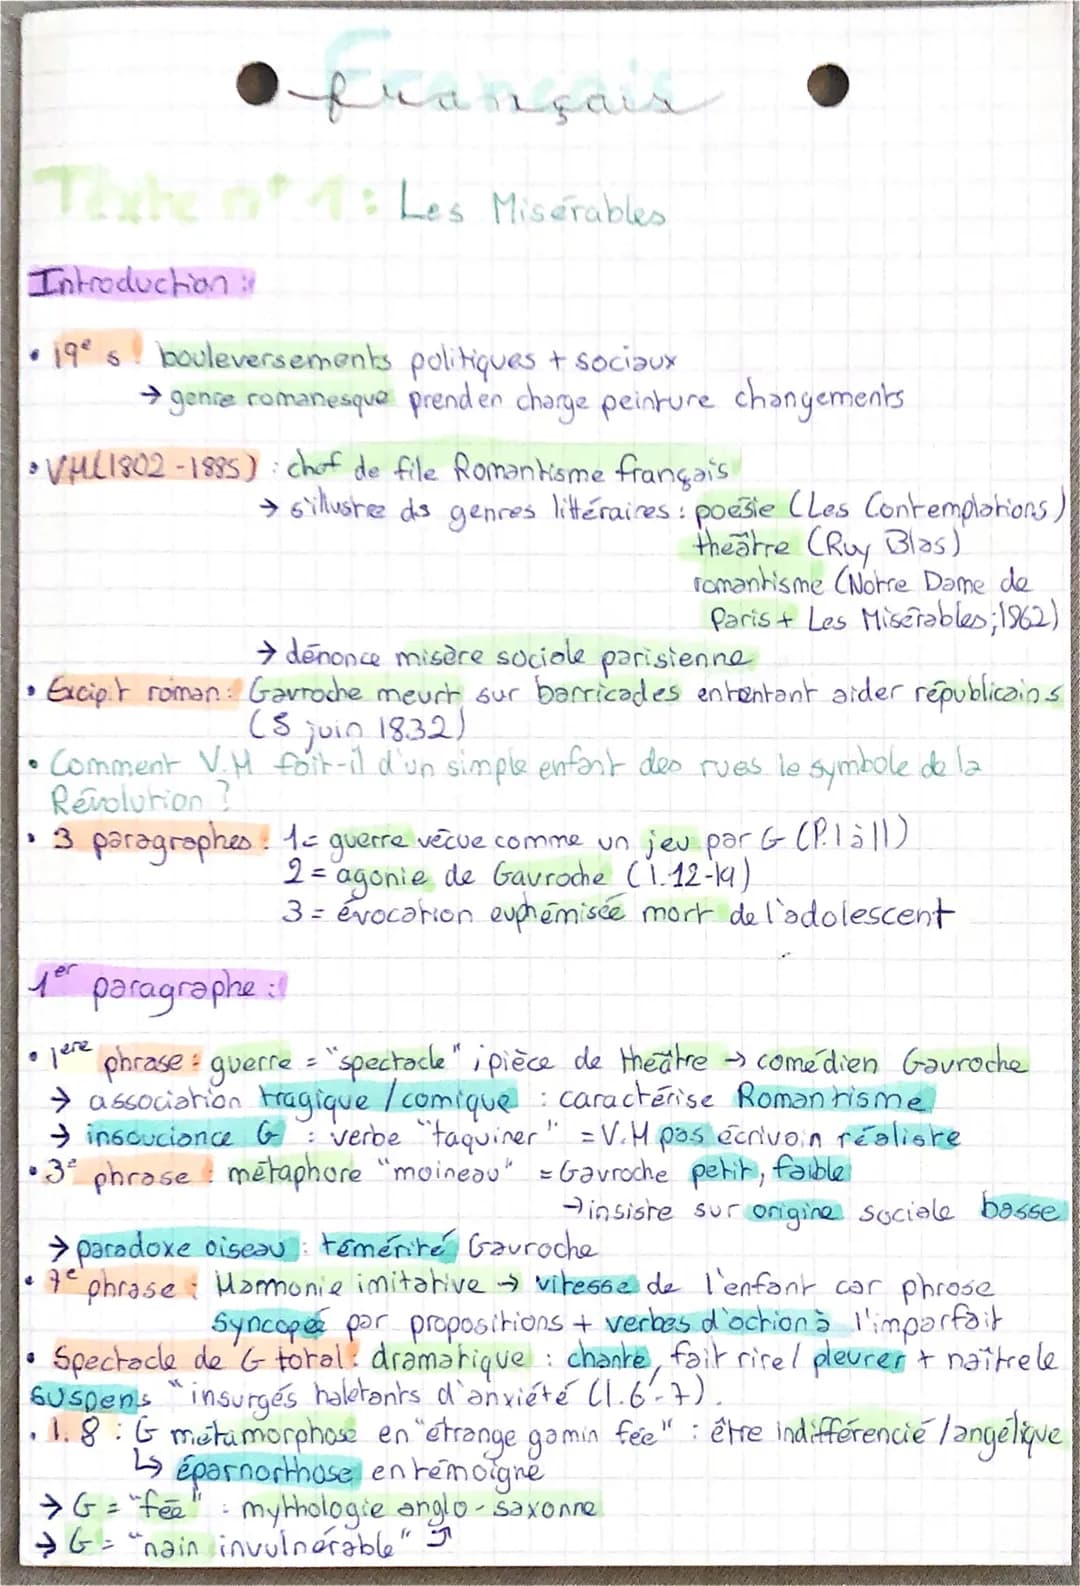 Français
français
Texte n°1 : Les Misérables
Introduction :
• 19e s : bouleversements politiques + sociaux
→ genre romanesque prend en charge peinture changements
• VH (1802-1885) : chef de file Romantisme français
→ s'illustre ds genres littéraires : poésie (Les Contemplations)
théâtre (Ruy Blas)
romantisme (Notre Dame de
Paris + Les Misérables ; 1862)
→ dénonce misère sociale parisienne
• Excip.t roman : Gavroche meurt sur barricades en tentant aider républicains
(5 juin 1832)
• Comment V.H fait-il d'un simple enfant des rues le symbole de la
Révolution ?
• 3 paragraphes : 1= guerre vécue comme un jeu par G (P.1 à 11)
2 = agonie de Gavroche (l.12-19)
3 = évocation euphémisée mort de l'adolescent
1er paragraphe :
• 1ère phrase : guerre = "spectacle" ; pièce de théâtre → comédien Gavroche
→ association tragique / comique : caractérise Romantisme
→ insouciance G : verbe "taquiner" = V.H pas écrivain réaliste
• 3e phrase : métaphore "moineau" = Gavroche petit, faible
→ insiste sur origine sociale basse
→ paradoxe oiseau : témérité Gavroche
• 7e phrase : Harmonie imitative → vitesse de l'enfant car phrase
syncopée par propositions + verbes d'action à l'imparfait
• Spectacle de G total : dramatique : chante, fait rire / pleurer + naître le
suspens "insurgés haletants d'anxiété (l.6-7).
• l. 8 : G métamorphose en "étrange gamin fée" : être indifférencié / angélique
↳ éparnorthose en témoigne
→ G = "fée" : mythologie anglo-saxonne
→ G = "nain invulnérable" ⤴